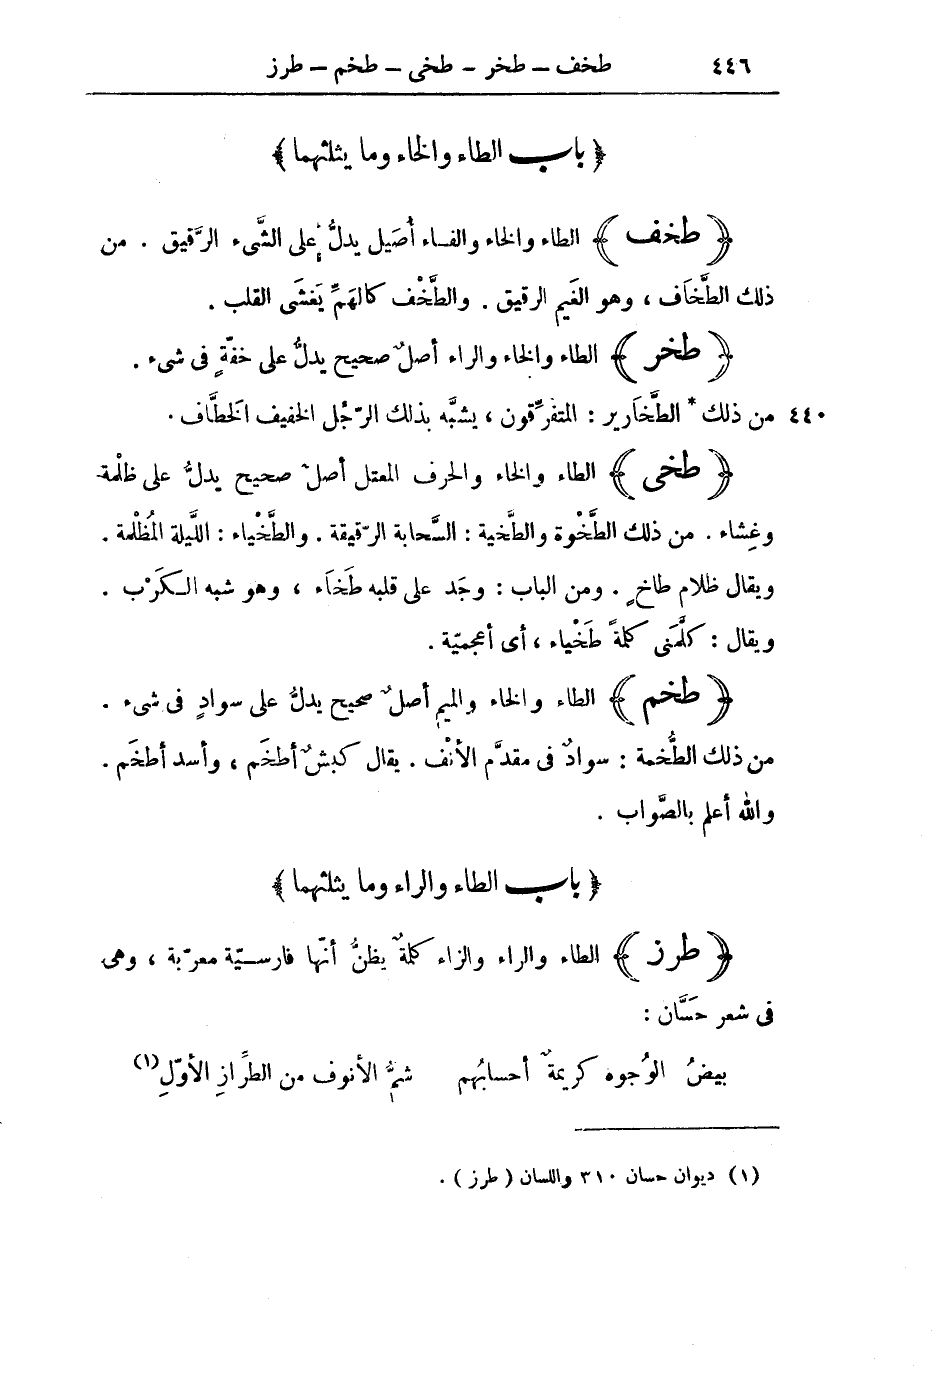 ٤٤٦ طخف – طخر – طخى – طخم – طرز
﴿ باب الطاء والخاء وما يثلثهما ﴾
﴿ طخف ﴾ الطاء والخاء والفاء أُصَيل يدلُّ على الشَّىء الرَّقيق . من
ذلك الطَّخَاف ، وهو الغَيم الرقيق . والطَّخْف كالهَمِّ يَغشَى القلب .
﴿ طخر ﴾ الطاء والخاء والراء أصلٌ صحيح يدلُّ على خفّةٍ فى شىء .
٤٤٠ من ذلك * الطَّخَارير : المتفرِّقون ، يشبَّه بذلك الرّجُل الخفيف الخَطَّاف .
﴿ طخى ﴾ الطاء والخاء والحرف المعتل أصلٌ صحيح يدلُّ على ظلْمة
وغِشاء . من ذلك الطَّخْوة والطَّخية : السَّحابة الرّقيقة . والطَّخْياء : اللَّيلة المُظْلمة .
ويقال ظلام طاخٍ . ومن الباب : وجَد على قلبه طَخَاء ، وهو شبه الكَرْب .
ويقال : كلَّمَنى كلمةً طَخْياء ، أى أعجميّة .
﴿ طخم ﴾ الطاء والخاء والميم أصلٌ صحيح يدلُّ على سوادٍ فى شىء .
من ذلك الطُّخمة : سوادٌ فى مقدَّم الأنْف . يقال كبشٌ أطخَم ، وأسد أطخَم .
والله أعلم بالصَّواب .
﴿ باب الطاء والراء وما يثلثهما ﴾
﴿ طرز ﴾ الطاء والراء والزاء كلمةٌ يظنُّ أنّها فارسيّة معرّبة ، وهى
فى شعر حَسَّان :
بيضُ الوُجوه كريمةٌ أحسابُهم شمُّ الأنوف من الطِّرازِ الأوّلِ(١)
(١) ديوان حسان ٣١٠ واللسان ( طرز ) .